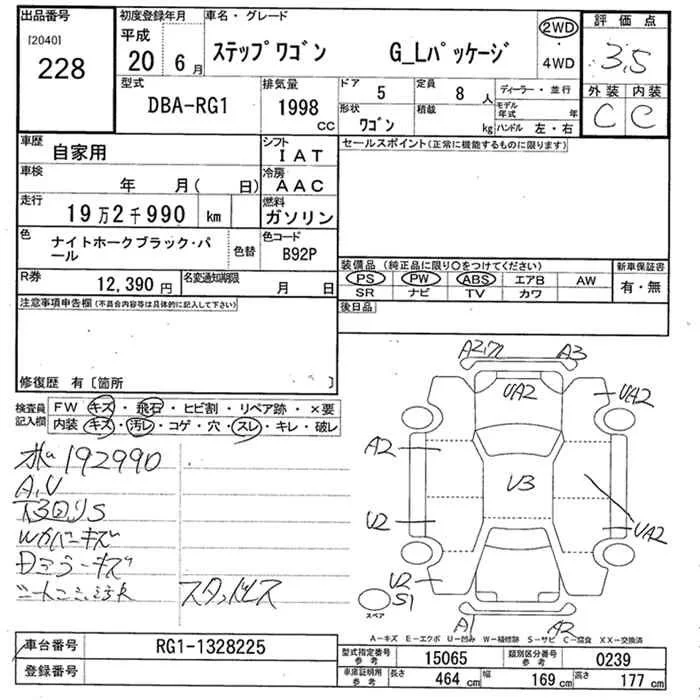 出品番号
[2040]
228
初度登録年月
平成
20 6月
車名・グレード
ステップワゴン G_Lパッケージ
2WD
・
4WD
評価点
3.5
外装 内装
C C
型式
DBA-RG1
排気量
1998
CC
ドア
5
定員
8 人
ディーラー・並行
モデル年式 年
形状
ワゴン
積載
kg
ハンドル 左・右
車歴
自家用
シフト
IAT
車検
年 月( 日)
冷房
AAC
走行
19万2千990 km
燃料
ガソリン
色
ナイトホークブラック・パール
色替
色コード
B92P
R券
12,390 円
名変通知期限
月 日
セールスポイント(正常に機能するものに限ります)
装備品 (純正品に限り○をつけてください)
PS PW ABS エアB AW
SR ナビ TV カワ
新車保証書
有・無
後日品
注意事項申告欄(不具合内容等は具体的に記入して下さい)
修復歴 有〔箇所 〕
検査員記入欄
FW キズ・飛石・ヒビ割・リペア跡・×要
内装 キズ・汚レ・コゲ・穴・スレ・キレ・破レ
192990
A,U
下回りS
Wカバーキズ
Dミラーキズ
スタッドレス
A2 A3
UA2 UA2
A2
U3
U2 UA2
U2
S1
スペア
A1 A2
A-キズ E-エクボ U-凹み W-補修跡 S-サビ C-腐食 XX-交換済
車台番号
RG1-1328225
登録番号
型式指定番号
参考
15065
類別区分番号
参考
0239
車庫証明用
参考
長さ 464 cm
幅 169 cm
高さ 177 cm